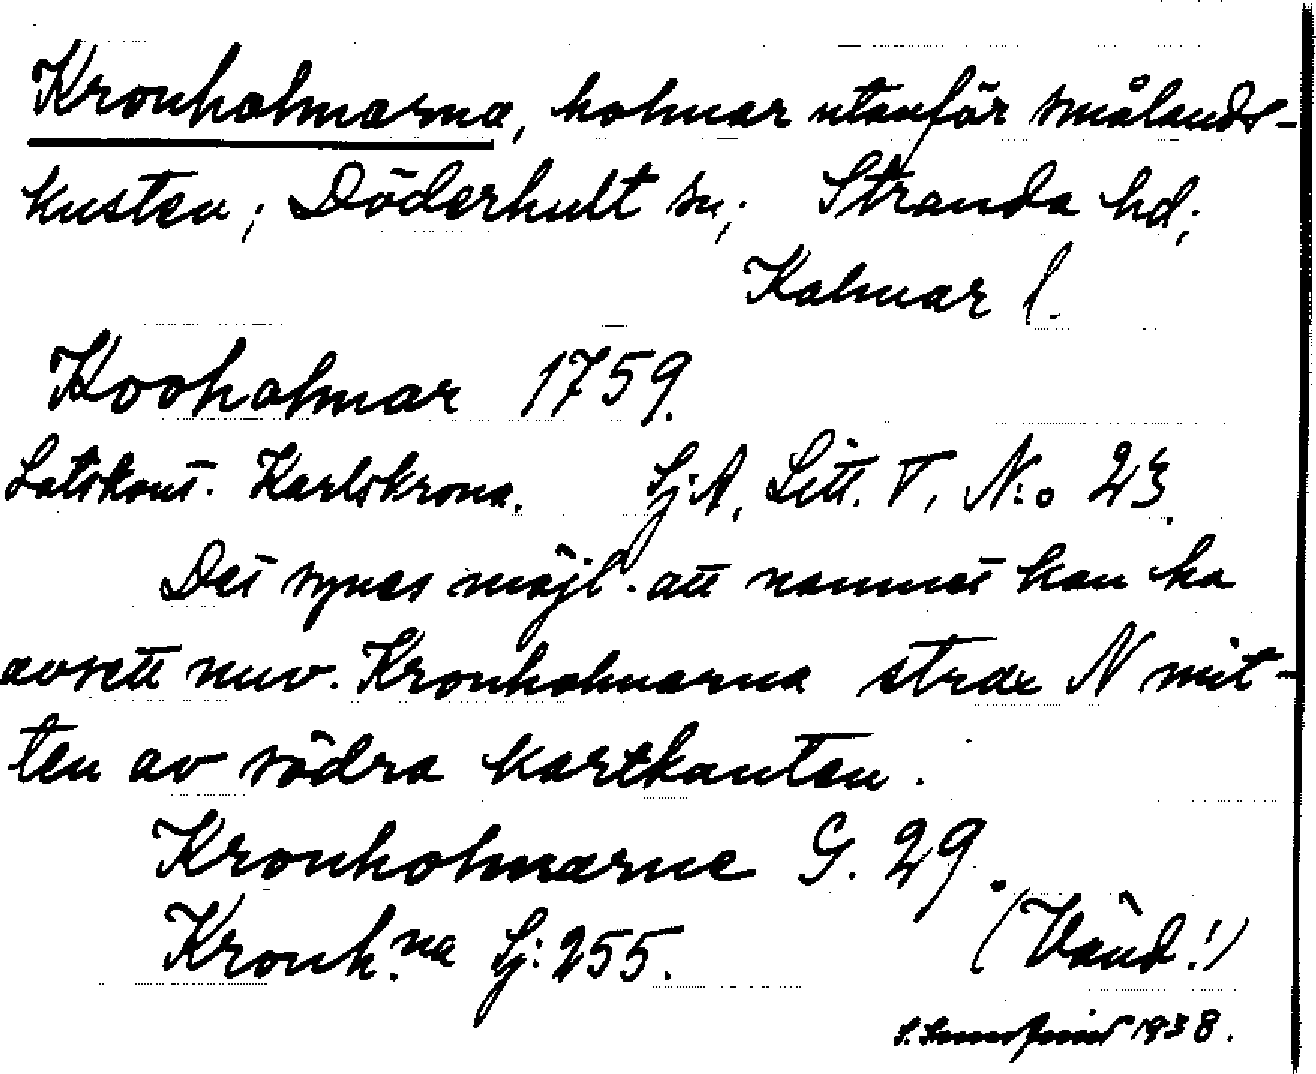 Kronholmarna, holmar utanför smålands-
kusten; Döderhult sn; Stranda hd;
Kalmar l.
Kooholmar 1759.
Lotskont. Karlskrona. Sj:A, Litt. V, N:o 23.
Det synes möjl. att namnet kan ha
avsett nuv. Kronholmarna strax N mit-
ten av södra kartkanten.
Kronholmarne G. 29.
Kronh.na Sj: 255. (Vänd!)
1938.